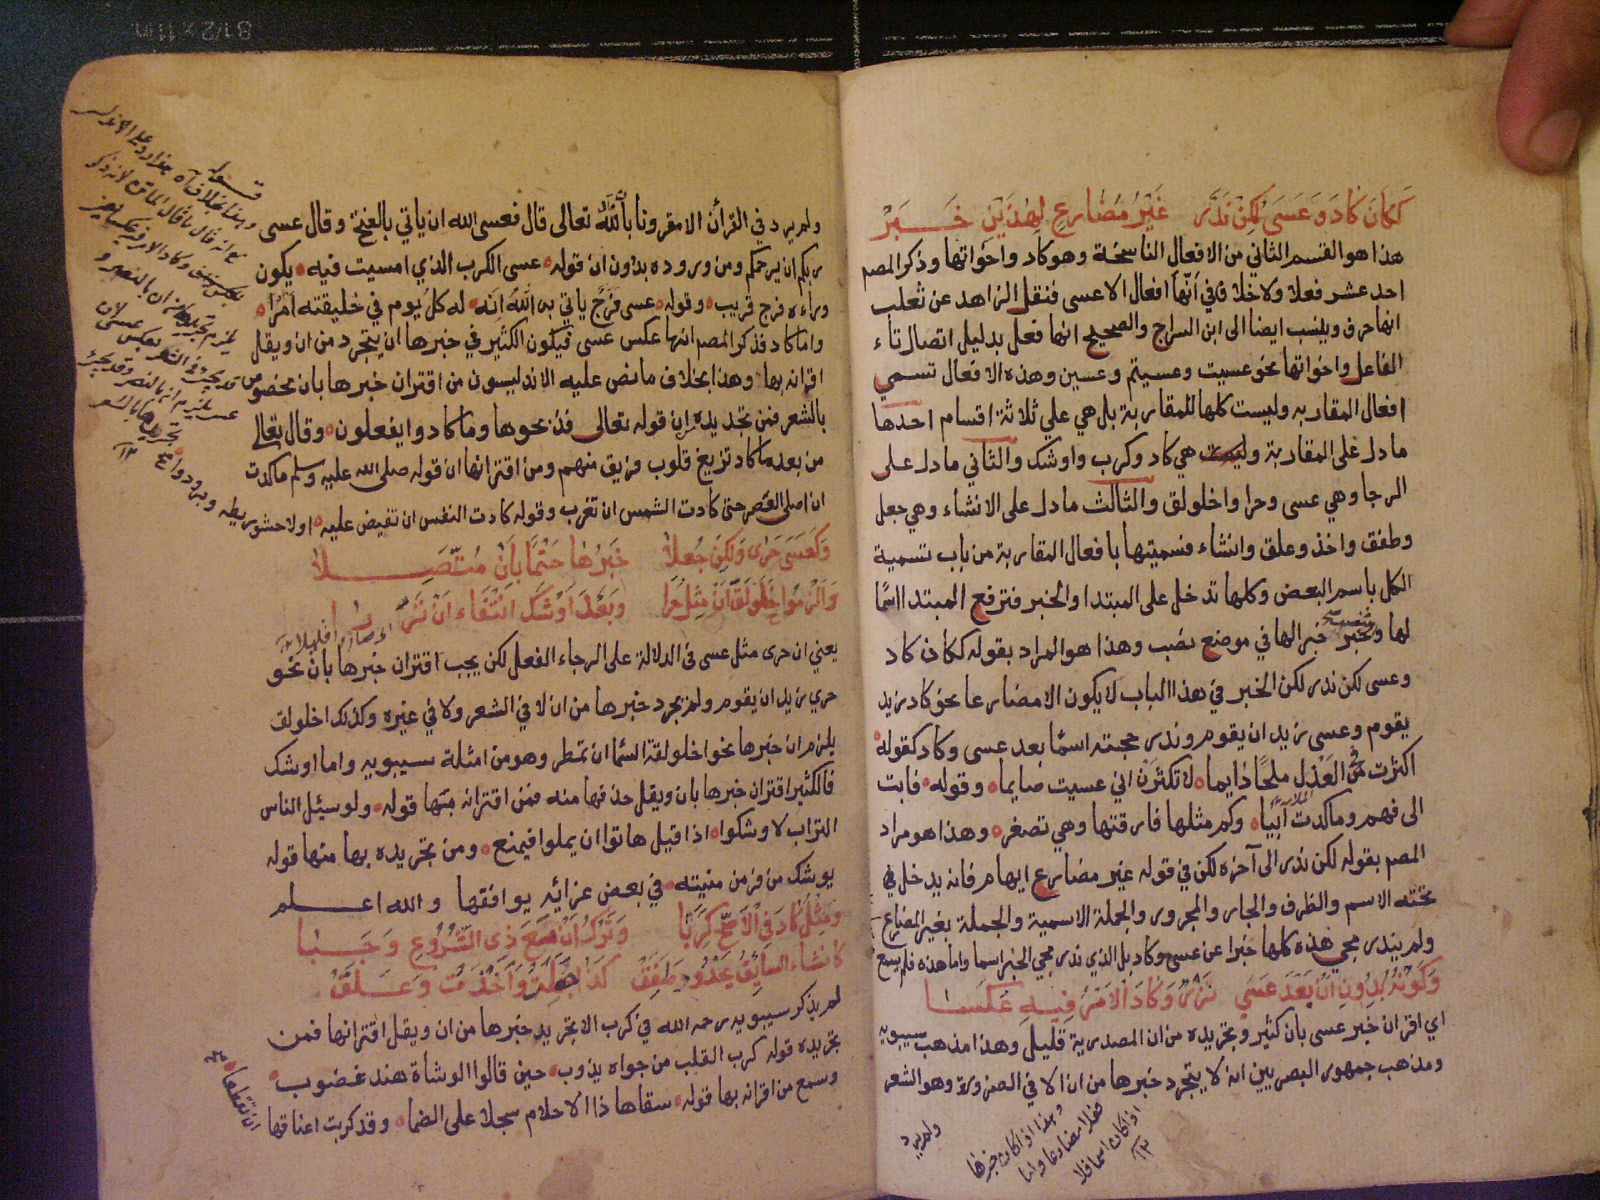 ككان كاد وعسى لكن ندر غير مضارع لهذين خبر
هذا هو القسم الثاني من الافعال الناسخة وهو كاد واخواتها وذكر المصم
احد عشر فعلا ولا خلاف في انها افعال الا عسى فنقل الزاهد عن ثعلب
انها حرف وينسب ايضا الى ابن السراج والصحيح انها فعل بدليل اتصال تاء
الفاعل واخواتها نحو عسيت وعسيتم وعسين وهذه الافعال تسمى
افعال المقاربه وليست كلها للمقاربة بل هي على ثلاثة اقسام احدها
ما دل على المقاربة وهي كاد وكرب واوشك والثاني ما دل على
الرجا وهي عسى وحرا واخلولق والثالث ما دل على الانشاء وهي جعل
وطفق واخذ وعلق وانشاء فتسميتها بافعال المقاربة من باب تسمية
الكل باسم البعض وكلها تدخل على المبتدا والخبر فترفع المبتدا اسما
لها وخبره خبرا لها في موضع نصب وهذا هو المراد بقوله ككان كاد
وعسى لكن ندر لكن الخبر في هذا الباب لا يكون الا مضارعا نحو كاد زيد
يقوم وعسى زيد ان يقوم وندر مجيئه اسما بعد عسى وكاد كقوله
اكثرت في العذل ملحا دايما لا تكثرن اني عسيت صايما وقوله فابت
الى فهم وما كدت آيبا وكم مثلها فارقتها وهي تصغر وهذا هو مراد
المصم بقوله لكن ندر الى آخره لكن في قوله غير مضارع ايهام فانه يدخل في
تحته الاسم والظرف والجار والمجرور والجملة الاسمية والجملة بغير المضارع
ولم يندر مجي هذه كلها خبرا عن عسى وكاد بل الذي ندر مجي الخبر اسما واما هذه فلم يسمع
وكونه بدون ان بعد عسى نزر وكاد الامر فيه عكسا
اي اقران خبر عسى بان كثير وتجريده من ان المصدرية قليل وهذا مذهب سيبويه
ومذهب جمهور البصريين انه لا يتجرد خبرها من ان الا في الضرورة وهو الشعر
وهذا اذا كان خبرها
فعلا مضارعا واما
اذا كان اسما فلا
١٢
ولم يرد
ولم يرد في القرأن الا مقرونا بان الله تعالى قال فعسى الله ان ياتي بالفتح وقال عسى
ربكم ان يرحمكم ومن وروده بدون ان قوله عسى الكرب الذي امسيت فيه يكون
وراءه فرج قريب وقوله عسى فرج ياتي به الله انه له كل يوم في خليقته امرا
واما كاد فذكر المصم انها عكس عسى فيكون الكثير في خبرها ان يتجرد من ان ويقل
اقرانه بها وهذا بخلاف ما نص عليه الاندليسون من اقتران خبرها بان مخصوص
بالشعر فمن تجديده ان قوله تعالى فذبحوها وما كادوا يفعلون وقال تعالى
من بعد ما كاد تزيغ قلوب فريق منهم ومن اقترانها ان قوله صلى الله عليه وسلم ما كدت
ان اصلي العصر حتى كادت الشمس ان تغرب وقوله كادت النفس ان تفيض عليه اولا حشو ريطه وبرود
وكعسى حرى ولكن جعلا خبرها حتما بان متصلا
والزموا اخلولق ان مثل حرا وبعد اوشك انتفاء ان نزرا
يعني ان حرى مثل عسى في الدلالة على الرجاء الفعل لكن يجب اقتران خبرها بان نحو
حرى زيد ان يقوم ولم يجرد خبرها من ان لا في الشعر ولا في غيره وكذلك اخلولق
يلزم ان خبرها نحو اخلولقة السما ان تمطر وهو من امثلة سيبويه واما اوشك
فالكثير اقتران خبرها بان ويقل حذفها منه فمن اقترانه بها قوله ولو سئيل الناس
التراب لاوشكوا اذا قيل هاتوا ان يملوا فيمنع ومن تجريده بها منها قوله
يوشك من فر من منيته في بعض غراته يوافقها والله اعلم
ومثل كاد في الاصح كربا وترك ان مع ذي الشروع وجبا
كانشاء السايق يحدو وطفق كذا جعلت واخذت وعلق
لم يذكر سيبويه رحمه الله في كرب الا تجريد خبرها من ان ويقل اقترانها فمن
تجريده قوله كرب القلب من جواه يذوب حين قالوا الوشاة هند غضوب
وسمع من اقرانه بها قوله سقاها ذا الاحلام سجلا على الضما وقد كربت اعناقها
ان تقطعا